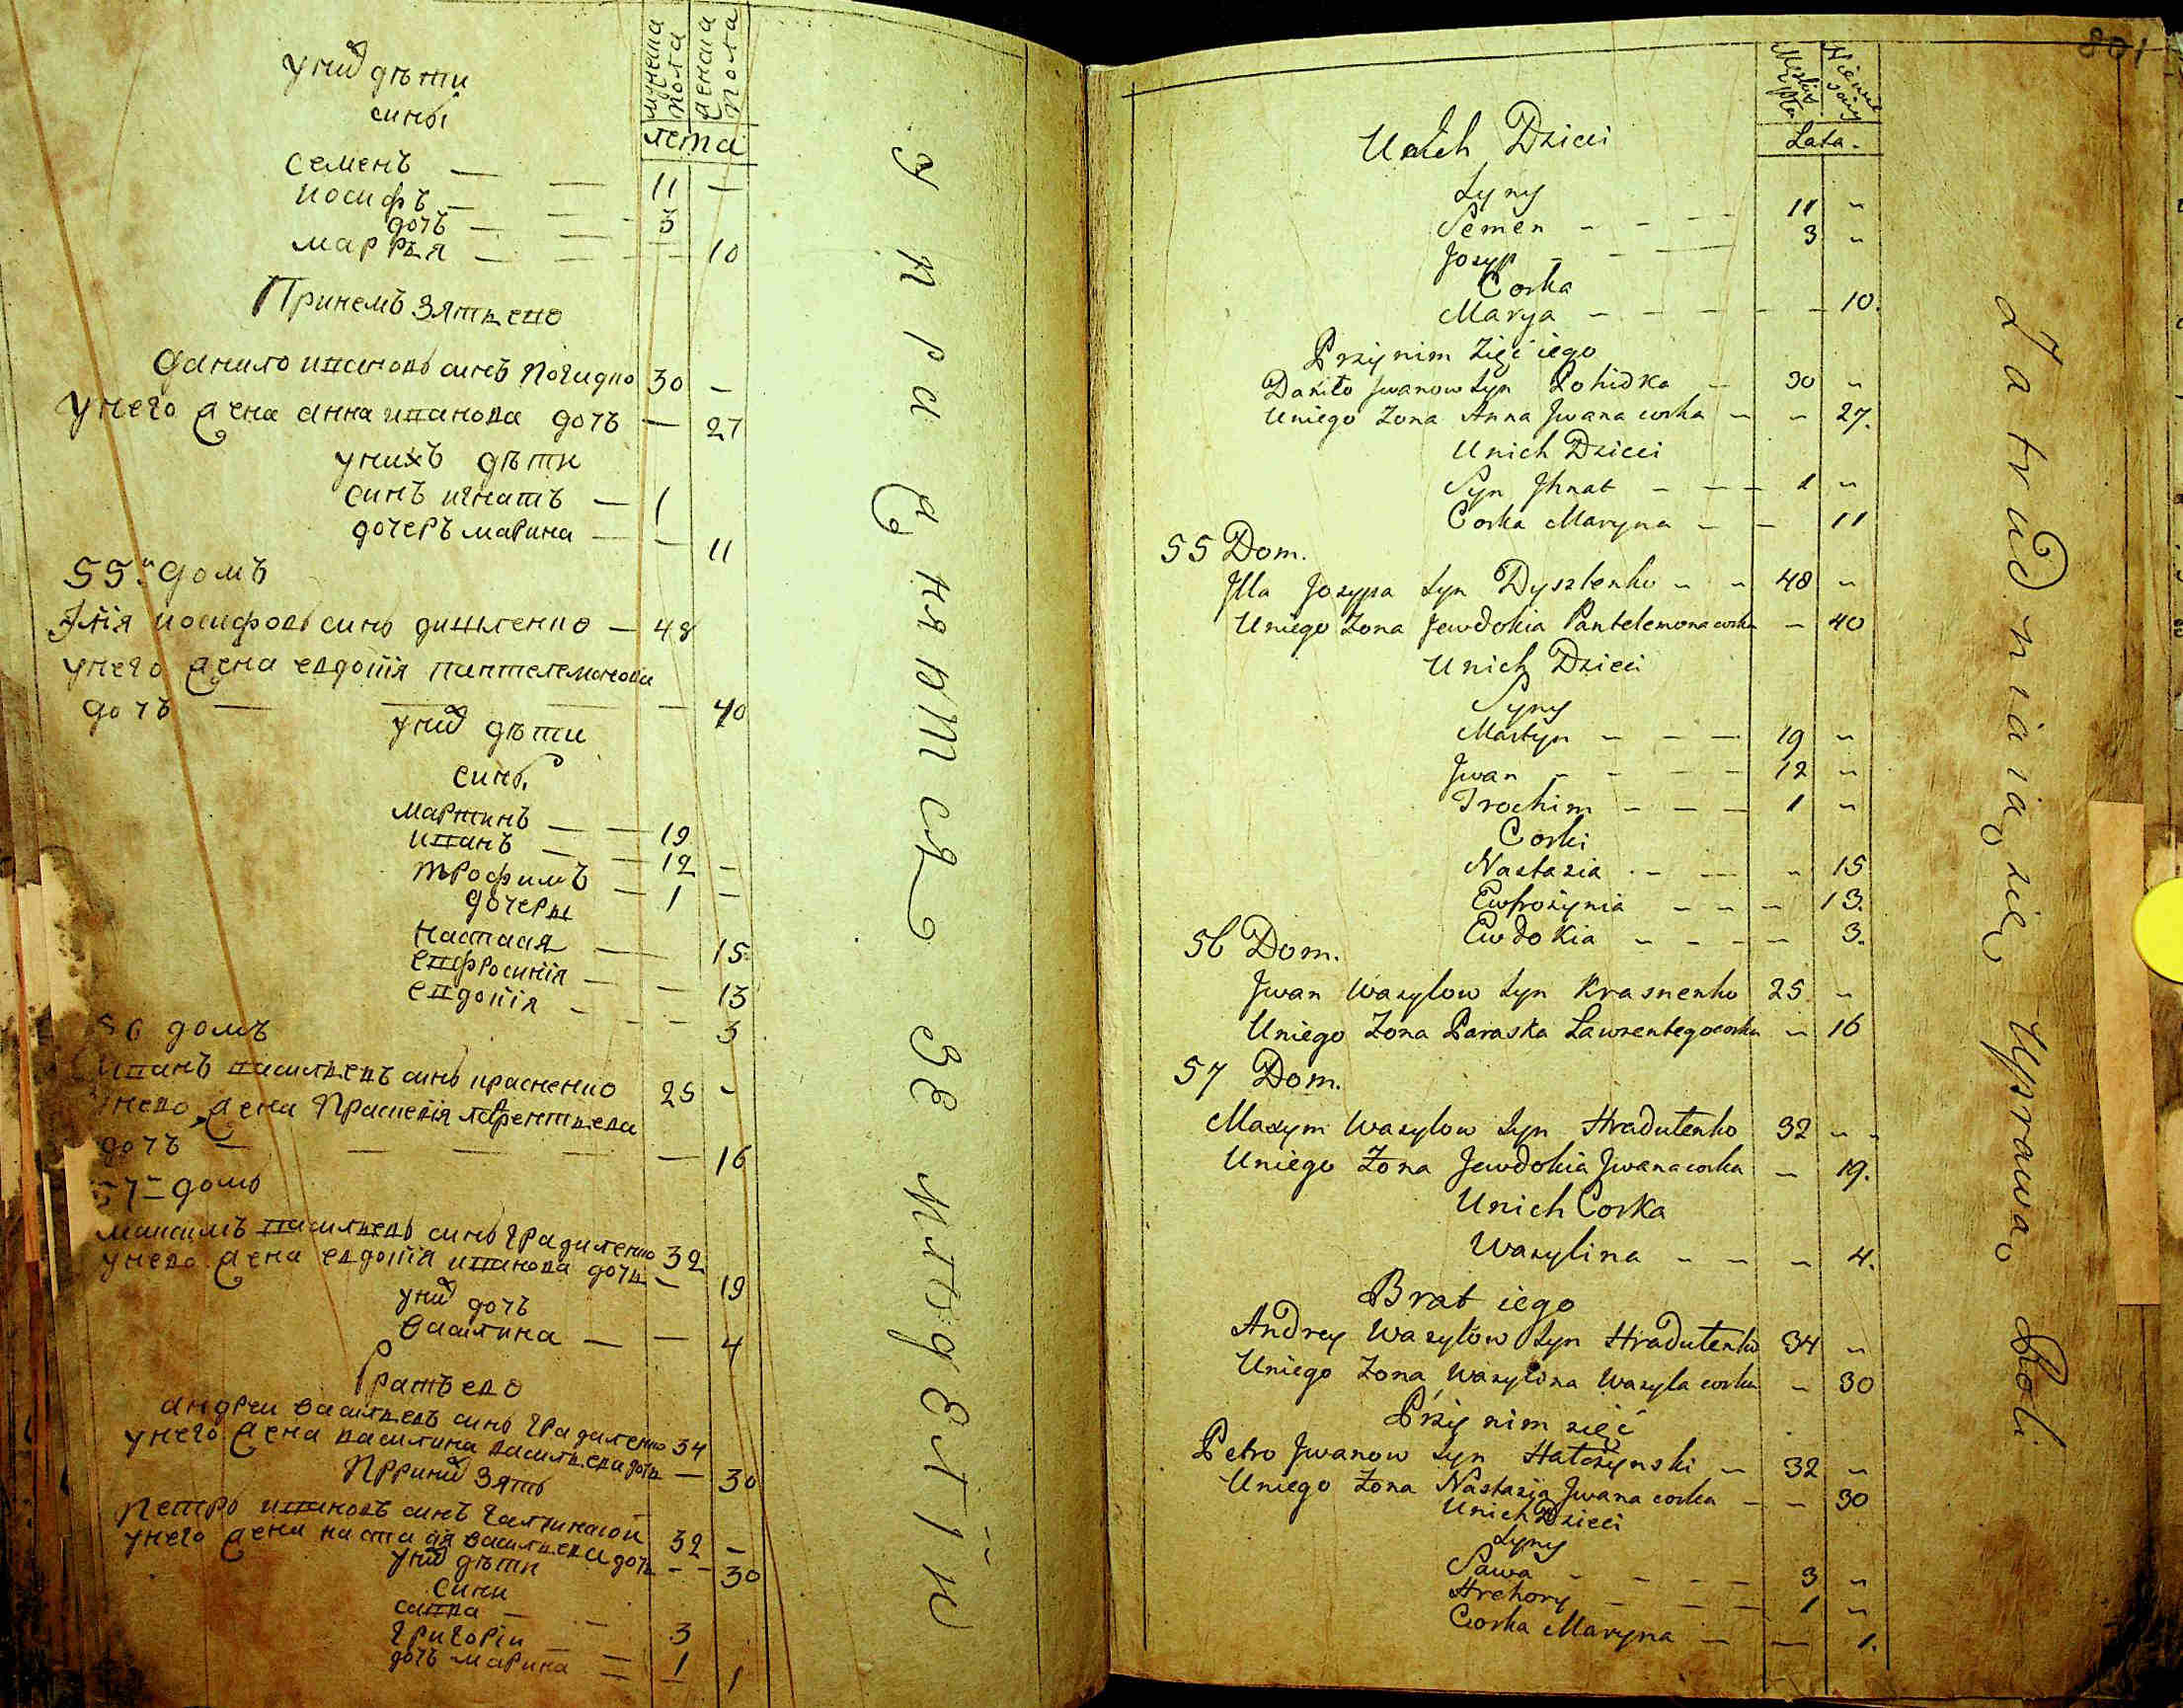 мужеска пола
женска пола
лета
у них дѣти
сины
семенъ — — 11 —
иосифъ — — 3
дочъ
марья — — — 10
При немъ зять его
данило ивановъ синъ погидко 30 —
у него жена анна иванова дочъ — 27
у нихъ дѣти
синъ игнатъ — 1
дочеръ марина — — 11
55й домъ
Илія иосифовъ синъ дишленко — 48
у него жена евдокія пантелемонова
дочъ — — — — 40
у них дѣти
сины
мартинъ — — 19
иванъ — — 12 —
трофимъ — 1 —
дочеры
настася — 15
евфросинія — — 13
евдокія — — — 3
56 домъ
иванъ васильевъ синъ красненко 25 —
у него жена Праскевія лаврентьева
дочъ — — — — — 16
57 домъ
максимъ васильевъ синъ градиленко 32
у него жена евдокія иванова дочь — 19
у них дочъ
василина — — 4
братъ его
андреи васильевъ синъ градиленко 34
у него жена василина васильева дочь — 30
При них зять
Петро ивановъ синъ галчинскои 32 —
у него жена настася васильева дочь — — 30
у них дѣти
сини
савва — — 3
григоріи — — 1
дочъ марина — — 1
упражняются земледелiи
801
Męska płta
Lata.
Unich Dzieci
Syny
Semen - - - 11 "
Jozyp - - 3 "
Corka
Marya - - - - - 10.
Przy nim Zięć iego
Daniło Jwanow Syn Pohidka - 30 "
Uniego Zona Anna Jwana corka - - 27.
Unich Dzieci
Syn Jhnat - - - 1 "
Corka Maryna - - 11
55 Dom.
Jlla Jozypa Syn Dyszlenko - - 48 "
Uniego Zona Jewdokia Pantelemona corka - 40
Unich Dzieci
Syny
Martyn - - - 19 "
Jwan - - - - 12 "
Trochim - - - 1 "
Corki
Nastazia - - " 15
Ewfrozynia - - - 13.
Ewdokia - - - - 3.
56 Dom.
Jwan Wazylow Syn Krasnenko 25 "
Uniego Zona Paraska Lawrentego corka - 16
57 Dom.
Maxym Wazylow Syn Hradutenko 32 "
Uniego Zona Jewdokia Jwana corka - 19.
Unich Corka
Wazylina - - - 4.
Brat iego
Andrey Wazylow Syn Hradutenko 34 "
Uniego Zona Wazylina Wazyla corka - 30
Przy nim zięć
Petro Jwanow Syn Hatczynski - 32 "
Uniego Zona Nastazia Jwana corka - - 30
Unich Dzieci
Syny
Sawa - - - - 3 "
Hrehory - - - 1 "
Corka Maryna - - 1.
Zatrudniaią się Uprawą Roli